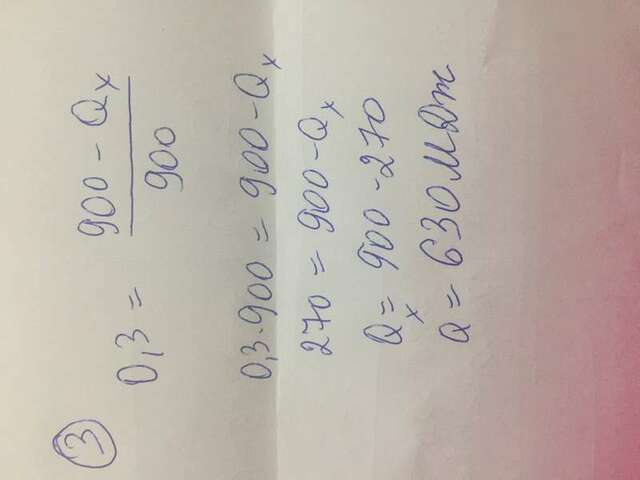 3
0,3 = (900 - Qx) / 900
0,3·900 = 900 - Qx
270 = 900 - Qx
Qx = 900 - 270
Q = 630 МДж